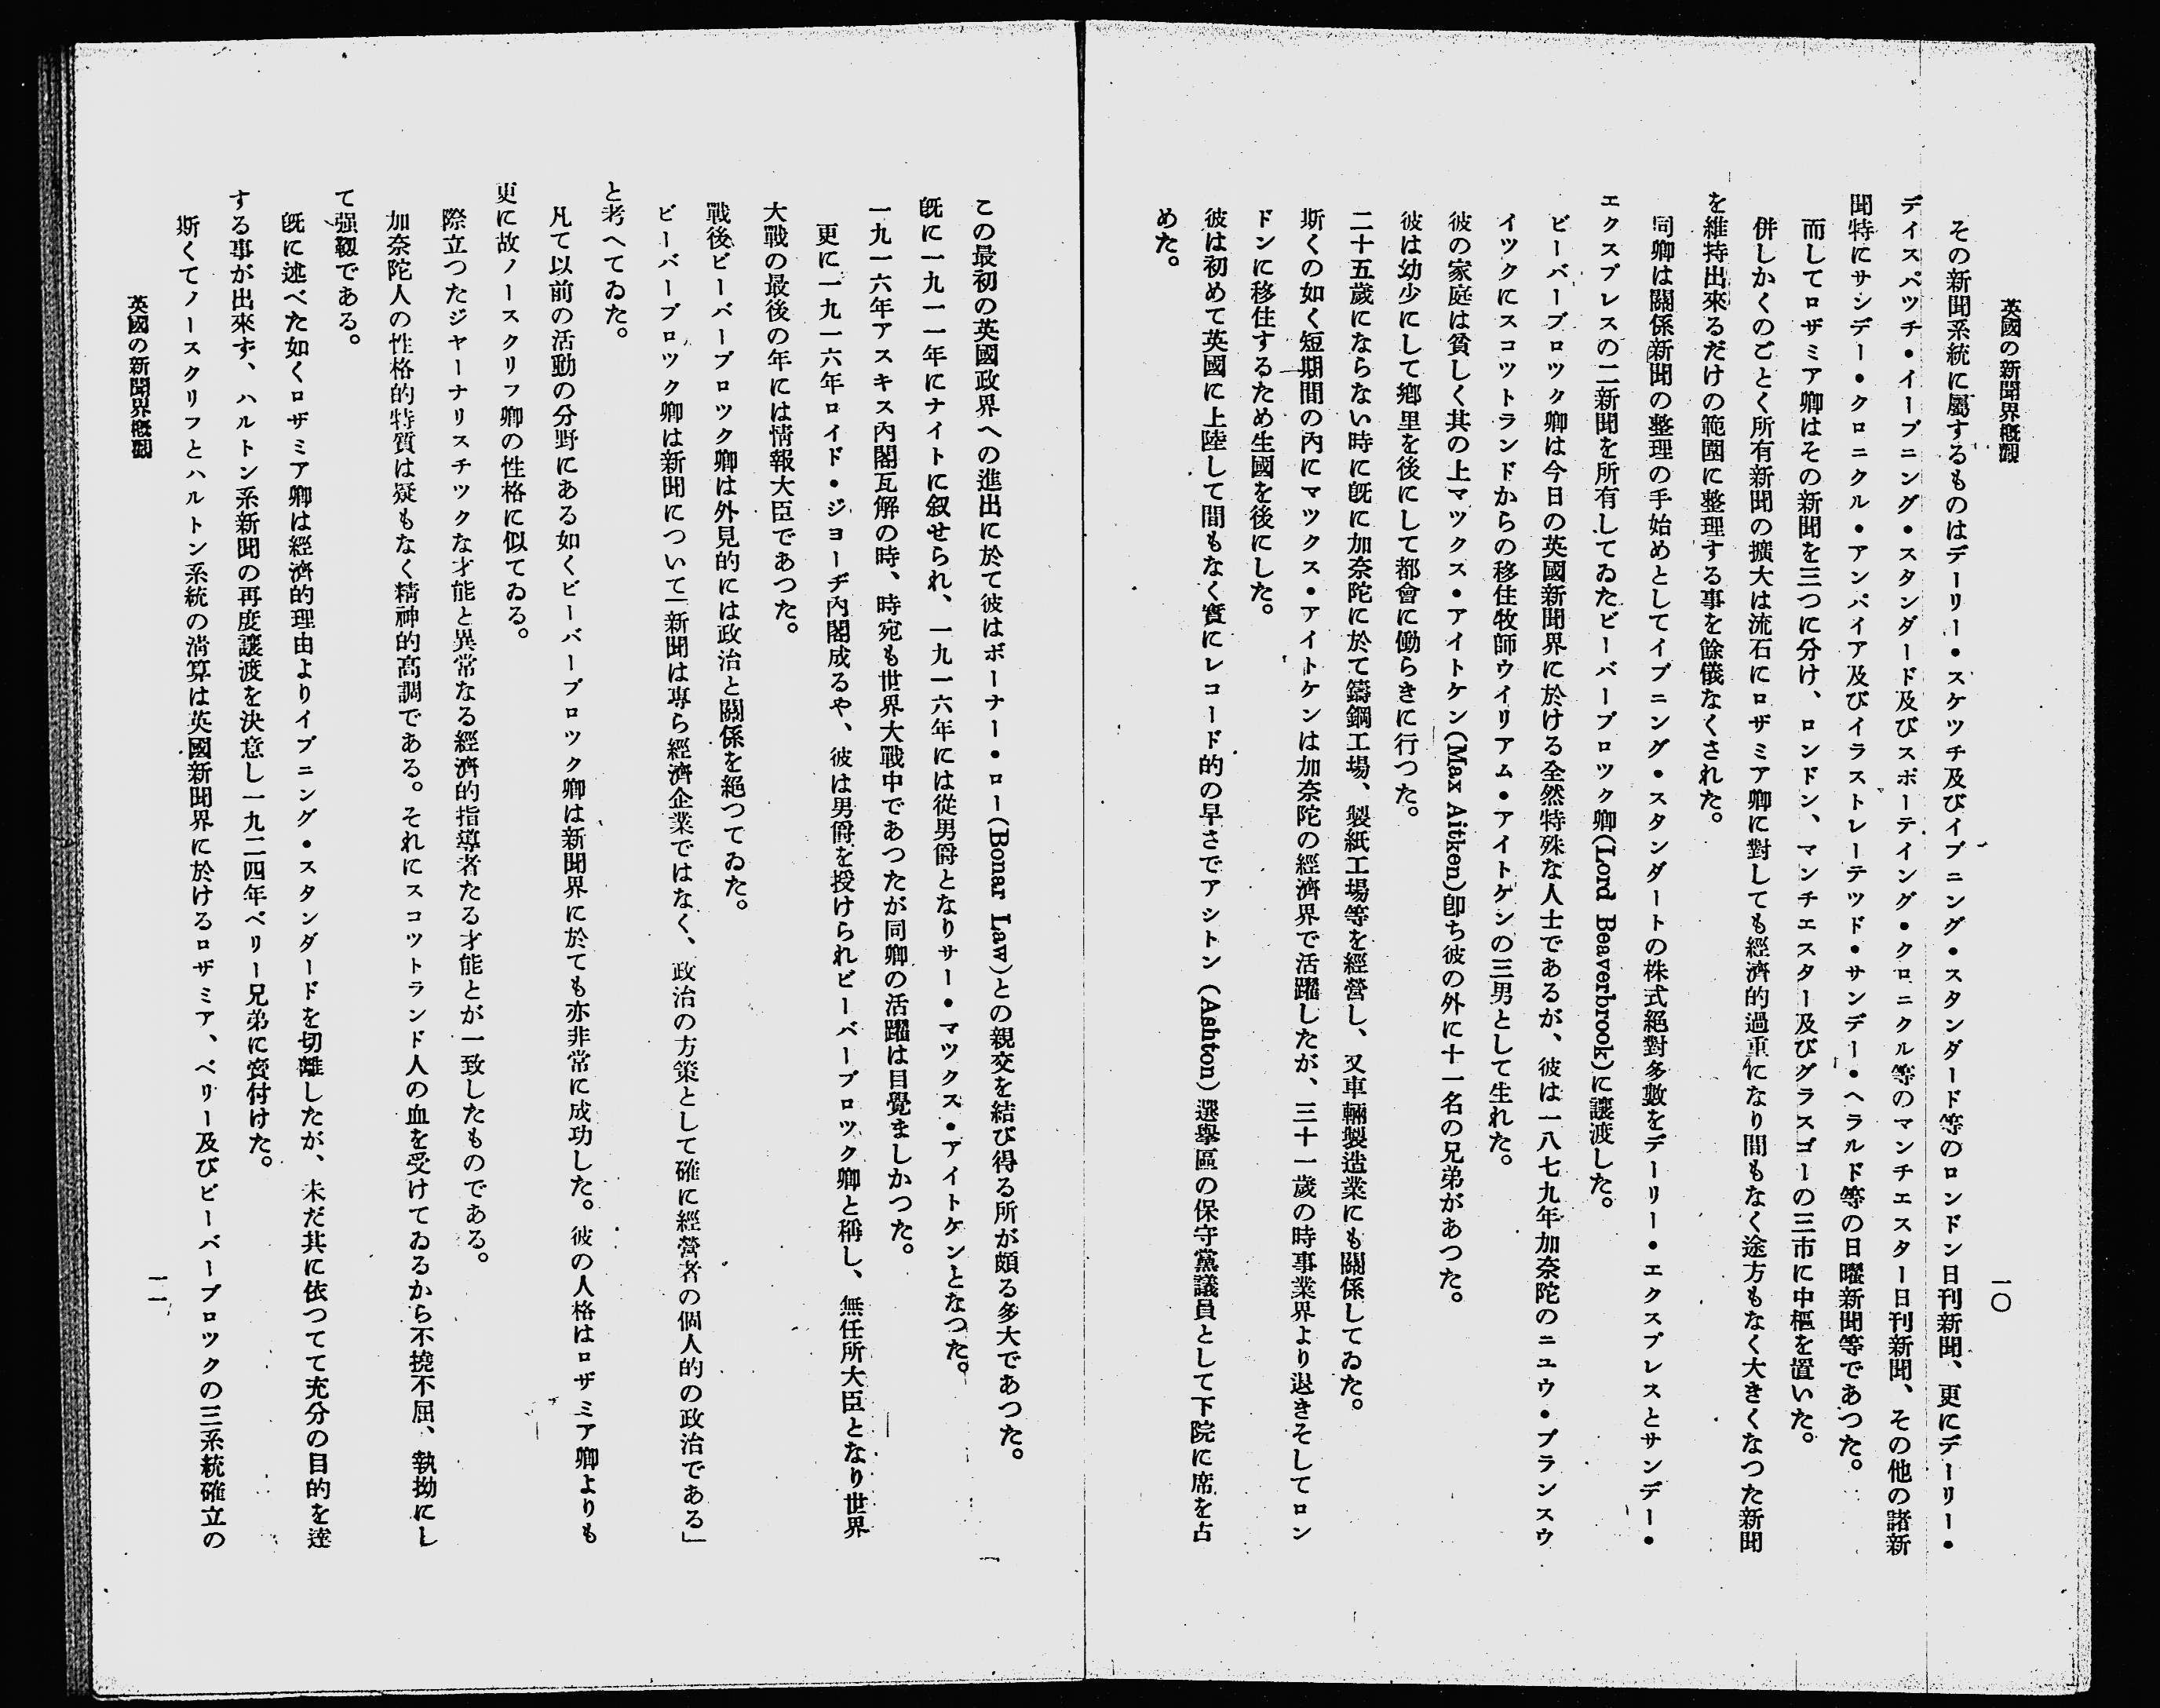 英國の新聞界槪觀
一〇
その新聞系統に屬するものはデーリー・スケツチ及びイブニング・スタンダード等のロンドン日刊新聞、更にデーリー・
デイスパツチ・イーブニング・スタンダード及びスポーテイング・クロニクル等のマンチエスター日刊新聞、その他の諸新
聞特にサンデー・クロニクル・アンパイア及びイラストレーテツド・サンデー・ヘラルド等の日曜新聞等であつた。
而してロザミア卿はその新聞を三つに分け、ロンドン、マンチエスター及びグラスゴーの三市に中樞を置いた。
併しかくのごとく所有新聞の擴大は流石にロザミア卿に對しても經濟的過重になり間もなく途方もなく大きくなつた新聞
を維持出來るだけの範圍に整理する事を餘儀なくされた。
同卿は關係新聞の整理の手始めとしてイブニング・スタンダートの株式絕對多數をデーリー・エクスプレスとサンデー・
エクスプレスの二新聞を所有してゐたビーバーブロツク卿(Lord Beaverbrook)に讓渡した。
ビーバーブロツク卿は今日の英國新聞界に於ける全然特殊な人士であるが、彼は一八七九年加奈陀のニユウ・ブランスウ
イツクにスコツトランドからの移住牧師ウイリアム・アイトケンの三男として生れた。
彼の家庭は貧しく其の上マツクス・アイトケン(Max Aitken)卽ち彼の外に十一名の兄弟があつた。
彼は幼少にして鄕里を後にして都會に働らきに行つた。
二十五歲にならない時に旣に加奈陀に於て鑄鋼工場、製紙工場等を經營し、又車輛製造業にも關係してゐた。
斯くの如く短期間の內にマツクス・アイトケンは加奈陀の經濟界で活躍したが、三十一歲の時事業界より退きそしてロン
ドンに移住するため生國を後にした。
彼は初めて英國に上陸して間もなく實にレコード的の早さでアシトン(Ashton)選擧區の保守黨議員として下院に席を占
めた。
この最初の英國政界への進出に於て彼はボーナー・ロー(Bonar Law)との親交を結び得る所が頗る多大であつた。
旣に一九一一年にナイトに叙せられ、一九一六年には從男爵となりサー・マツクス・アイトケンとなつた。
一九一六年アスキス內閣瓦解の時、時宛も世界大戰中であつたが同卿の活躍は目覺ましかつた。
更に一九一六年ロイド・ジヨーヂ內閣成るや、彼は男爵を授けられビーバーブロツク卿と稱し、無任所大臣となり世界
大戰の最後の年には情報大臣であつた。
戰後ビーバーブロツク卿は外見的には政治と關係を絕つてゐた。
ビーバーブロツク卿は新聞について「新聞は專ら經濟企業ではなく、政治の方策として確に經營者の個人的の政治である」
と考へてゐた。
凡て以前の活動の分野にある如くビーバーブロツク卿は新聞界に於ても亦非常に成功した。彼の人格はロザミア卿よりも
更に故ノースクリフ卿の性格に似てゐる。
際立つたジヤーナリスチツクな才能と異常なる經濟的指導者たる才能とが一致したものである。
加奈陀人の性格的特質は疑もなく精神的高調である。それにスコツトランド人の血を受けてゐるから不撓不屈、執拗にし
て强靱である。
旣に述べた如くロザミア卿は經濟的理由よりイブニング・スタンダードを切離したが、未だ共に依つてて充分の目的を達
する事が出來ず、ハルトン系新聞の再度讓渡を決意し一九二四年ベリー兄弟に賣付けた。
斯くてノースクリフとハルトン系統の淸算は英國新聞界に於けるロザミア、ベリー及びビーバーブロツクの三系統確立の
英國の新聞界槪觀
一一